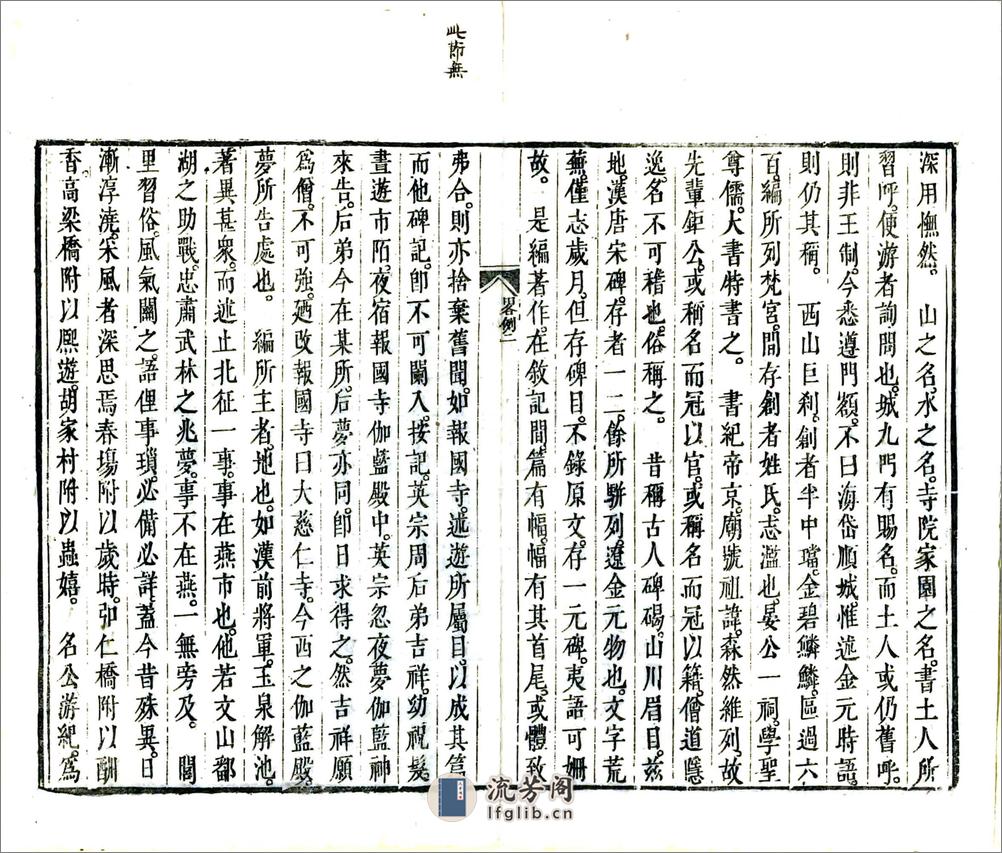 此節無
深用憮然。　山之名、水之名、寺院家園之名、書土人所
習呼、便游者詢問也。城九門有賜名、而土人或仍舊呼、
則非王制。今悉遵門額、不曰海岱順城、惟述金元時語、
則仍其稱。　西山巨刹、創者半中璫、金碧鱗鱗、區過六
百、編所列梵宮、間存創者姓氏、志濫也。晏公一祠、學聖
尊儒、大書特書之。　書紀帝京、廟號祖諱、森然維列、故
先輩鉅公、或稱名而冠以官、或稱名而冠以籍、僧道隱
逸、名不可稽也、俗稱之。　昔稱古人碑碣、山川眉目、茲
地、漢唐宋碑、存者一二、餘所駢列、遼金元物也。文字荒
蕪、僅志歲月、但存碑目、不錄原文、存一元碑、夷語可姍
故。　是編著作、在敘記間、篇有幅、幅有其首尾、或體致
畧例二
弗合、則亦捨棄舊聞、如報國寺、述遊所屬目、以成其篇、
而他碑記、卽不可闌入。按記、英宗周后弟吉祥、幼祝髮、
晝遊市陌、夜宿報國寺伽藍殿中、英宗忽夜夢伽藍神
來告、后弟今在某所、后夢亦同、卽日求得之、然吉祥願
爲僧、不可強、廼改報國寺曰大慈仁寺、今西之伽藍殿、
夢所告處也。　編所主者、地也、如漢前將軍、玉泉解池、
著異甚衆、而述止北征一事、事在燕市也、他若文山鄱
湖之助戰、忠肅武林之兆夢、事不在燕、一無旁及。　閭
里習俗、風氣關之、語俚事瑣、必備必詳、蓋今昔殊異、日
漸淳澆、采風者深思焉、春場附以歲時、弘仁橋附以酬
香、高梁橋附以熙遊、胡家村附以蟲嬉。　名公游紀、爲
流芳阁
lfglib.cn